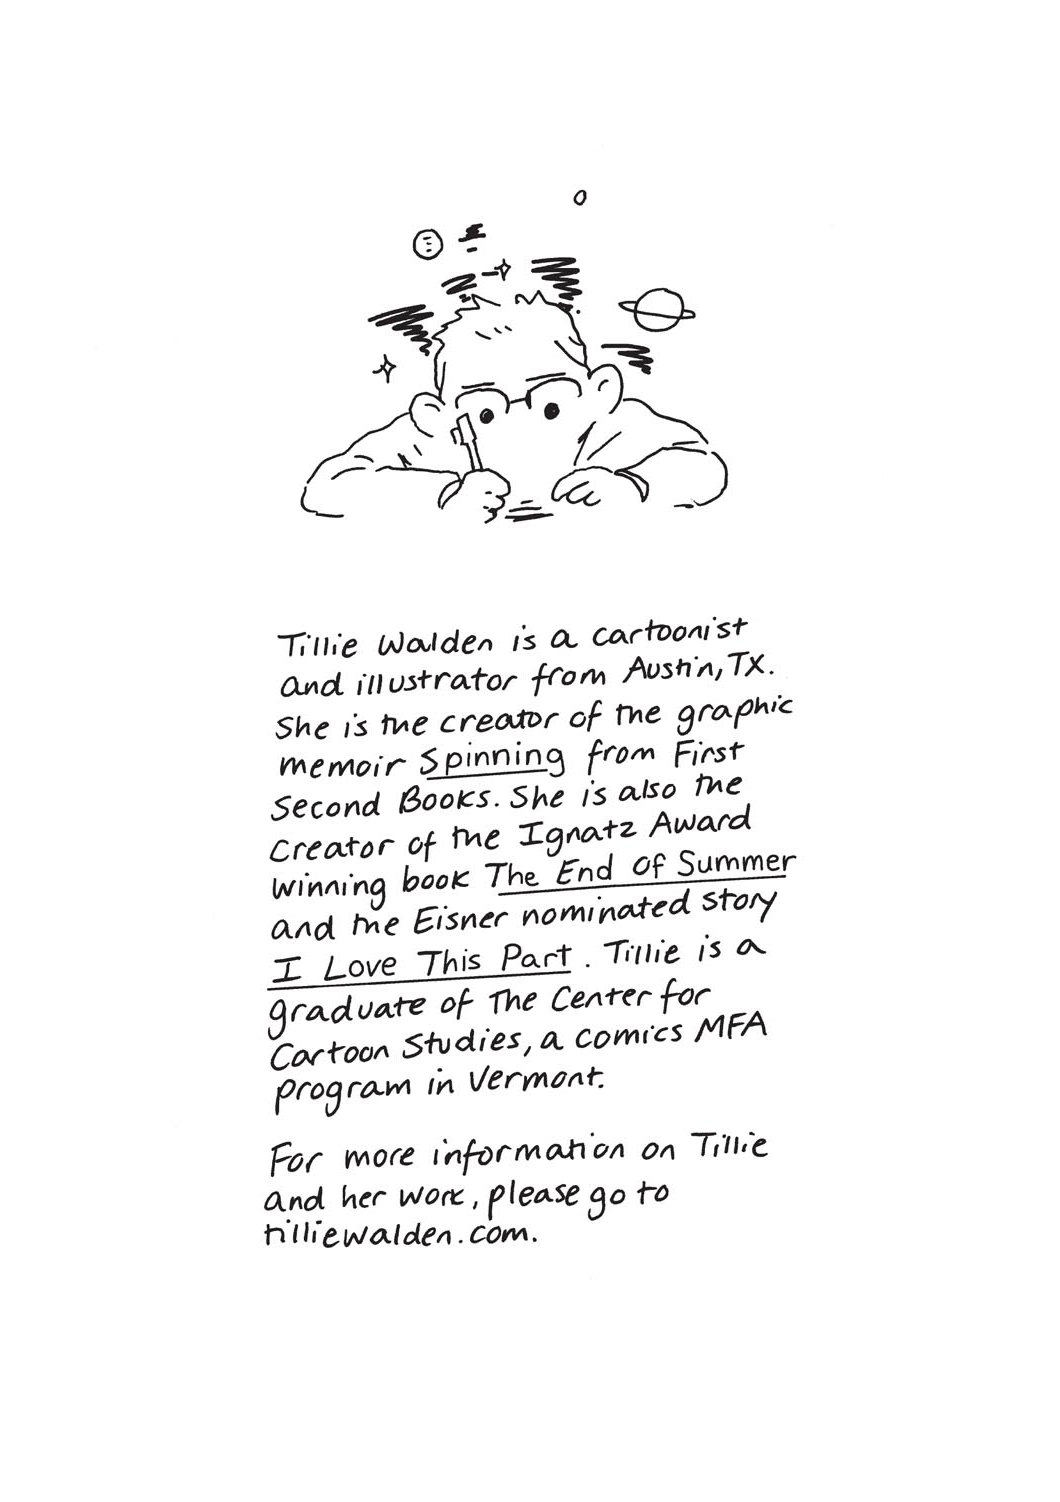 Tillie Walden is a cartoonist
and illustrator from Austin, TX.
She is the creator of the graphic
memoir Spinning from First
Second Books. She is also the
creator of the Ignatz Award
winning book The End Of Summer
and the Eisner nominated story
I Love This Part. Tillie is a
graduate of The Center for
Cartoon Studies, a comics MFA
program in Vermont.
For more information on Tillie
and her work, please go to
tilliewalden.com.